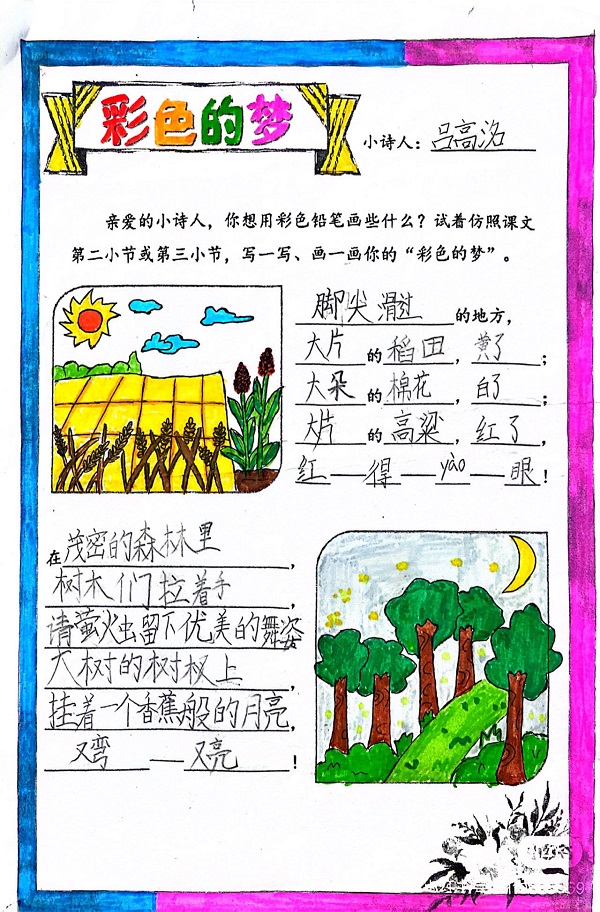 彩色的梦
小诗人：吕高洺
亲爱的小诗人，你想用彩色铅笔画些什么？试着仿照课文
第二小节或第三小节，写一写、画一画你的“彩色的梦”。
脚尖滑过的地方，
大片的稻田，黄了；
大朵的棉花，白了；
大片的高粱，红了，
红—得—yào—眼！
在茂密的森林里，
树木们拉着手，
请萤火虫留下优美的舞姿
大树的树杈上，
挂着一个香蕉般的月亮，
又弯——又亮！